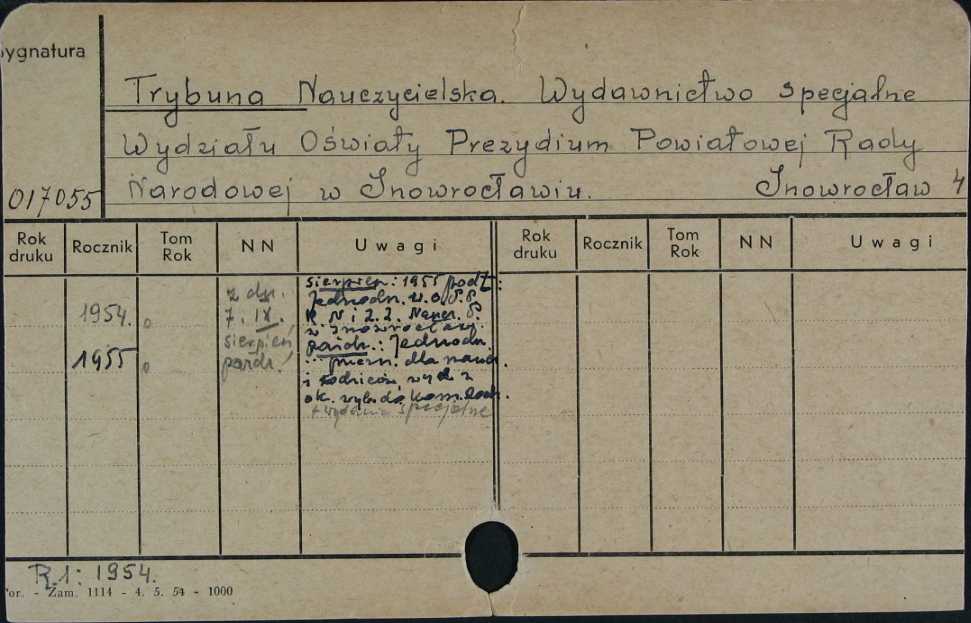 Sygnatura
Trybuna Nauczycielska. Wydawnictwo specjalne
Wydziału Oświaty Prezydium Powiatowej Rady
017055 Narodowej w Inowrocławiu. Inowrocław 4
Rok druku Rocznik Tom Rok N N Uwagi Rok druku Rocznik Tom Rok N N Uwagi
sierpień: 1955 podt:
z dn. Jednodn. W. O. P. P.
1954. 7. IX. R. N i Z. Z. Naucz. P.
w Inowrocławiu.
sierpień paźdz.: Jednodn.
1955 paźdz. dla naucz.
i rodziców, wyd. z
ok. wyb. do kom.
+ wydanie specjalne
R.1: 1954.
or. - Zam. 1114 - 4. 5. 54 - 1000